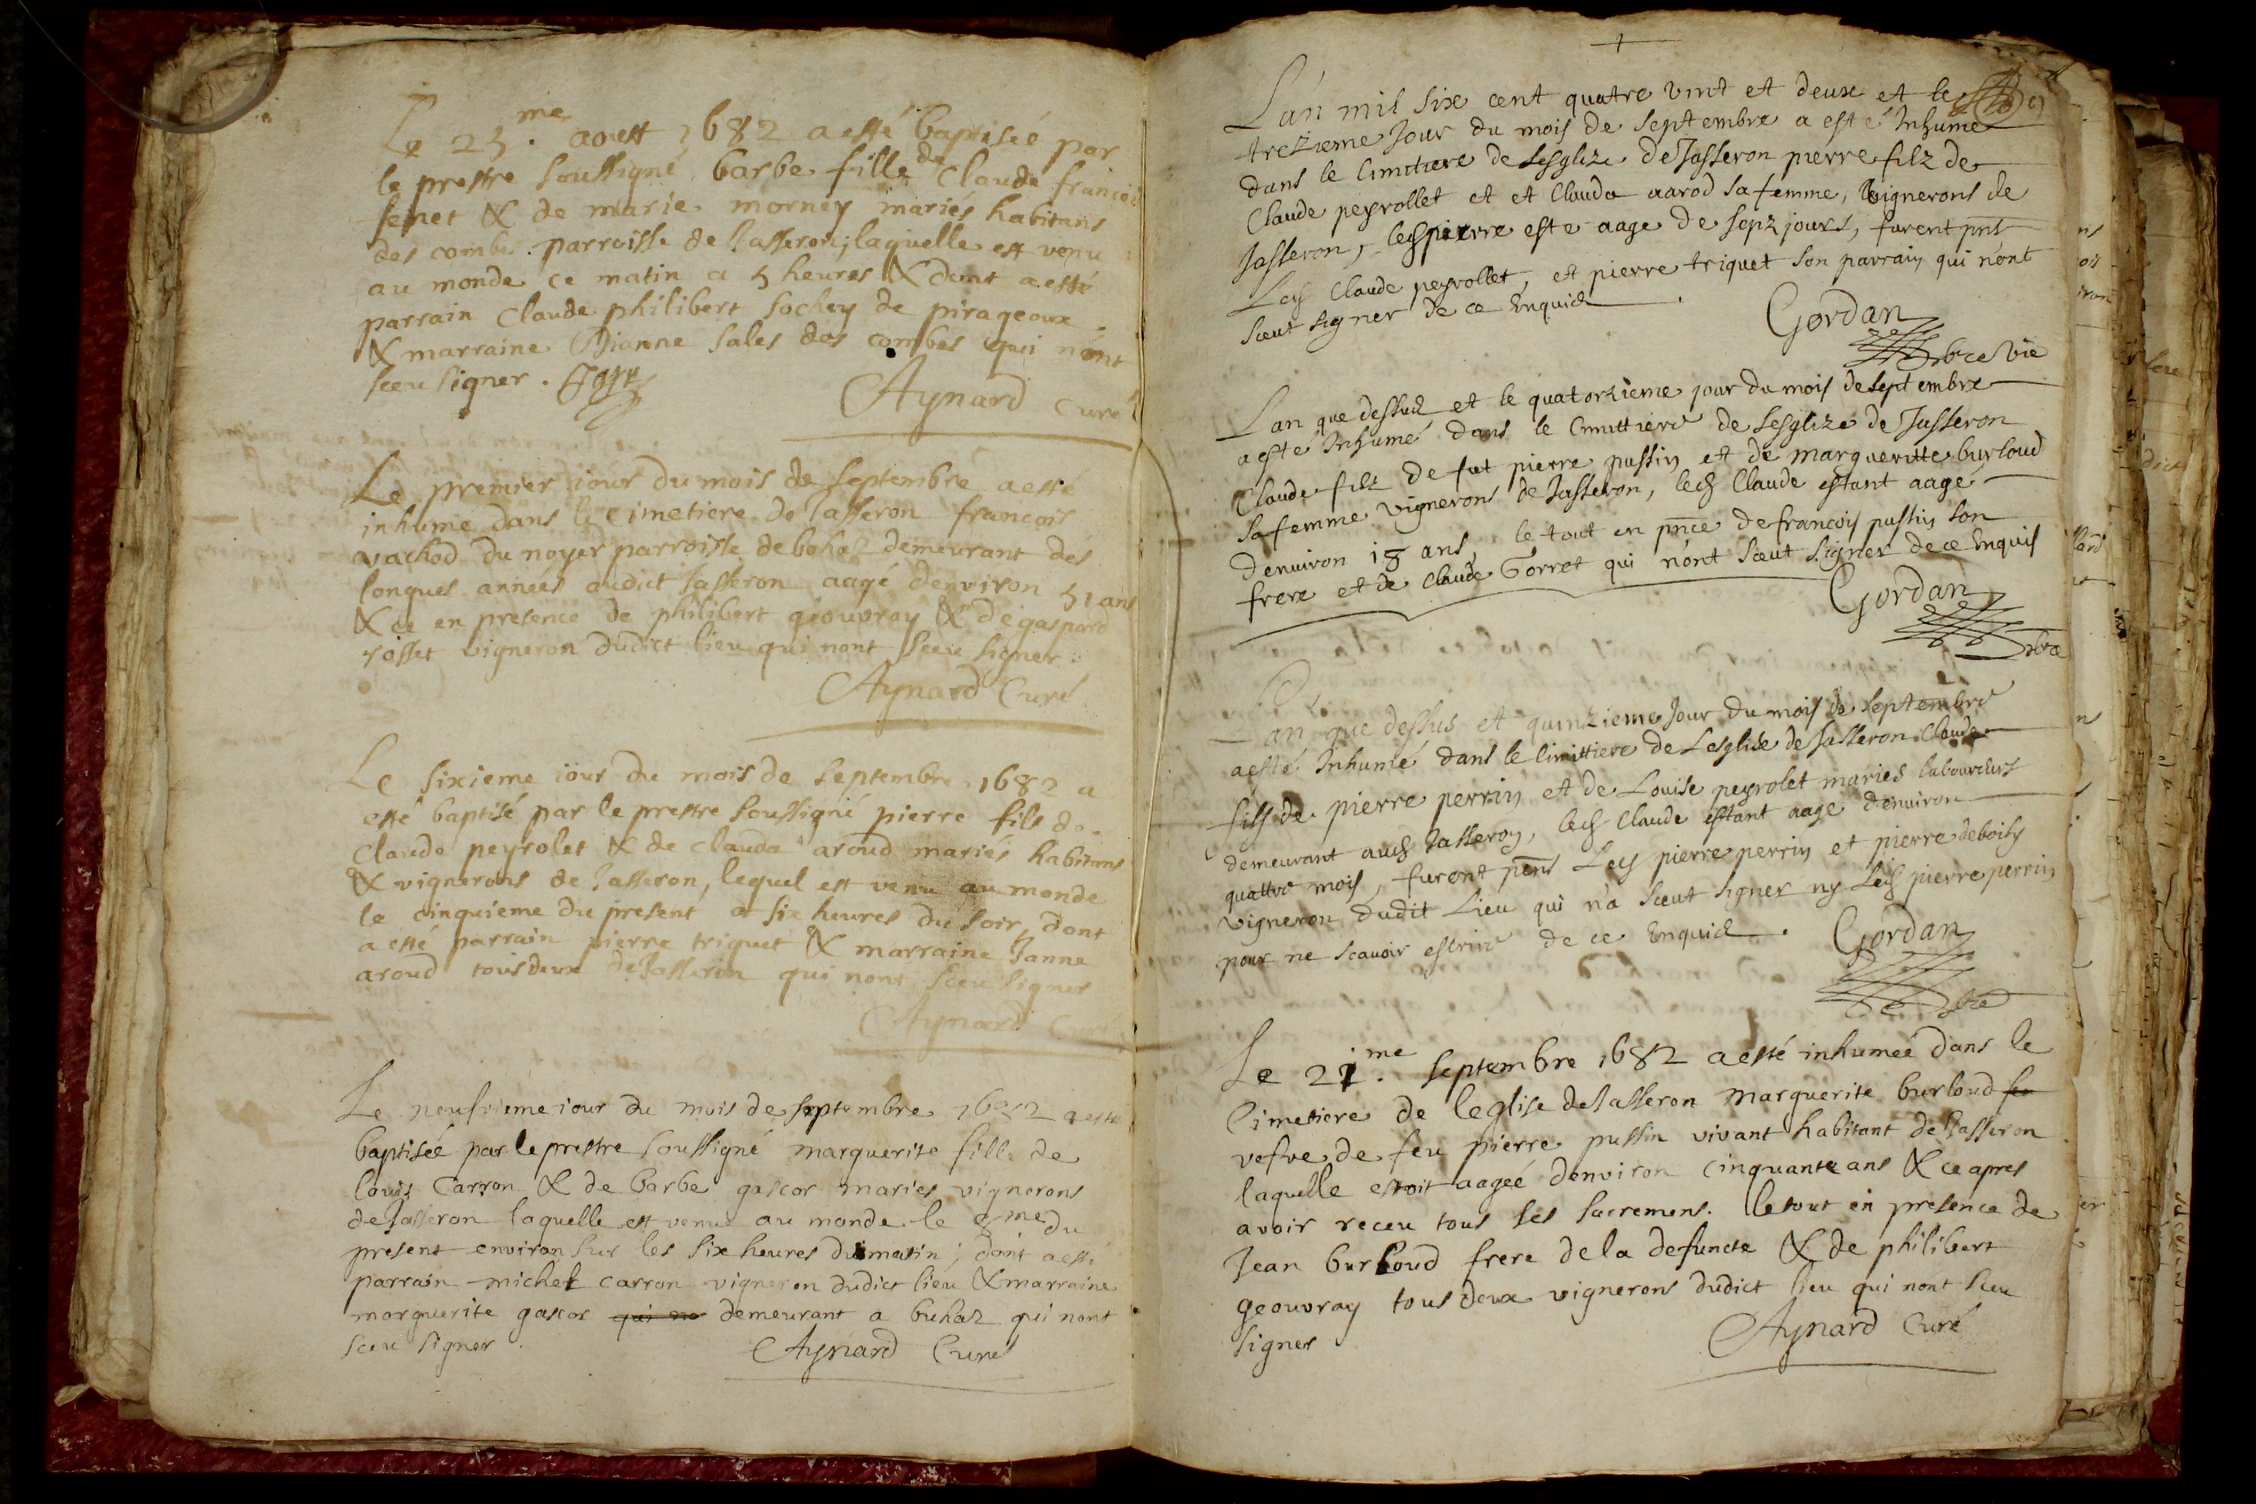 Le 25.me aoust 1682 a esté baptisée par
le prestre soussigné barbe fille de Claude françois
fenet & de marie morney mariés habitans
des combes parroisse de Jasseron, laquelle est venu
au monde ce matin a 5 heures & dont a esté
parrain Claude philibert sochey de pirageoux
& marraine Dianne sales des combes qui n'ont
sceu signer.
Aynard curé
Le premier iour du mois de septembre a esté
inhumé dans le cimetiere de Jasseron francois
vachod du noyer parroisse de bohaz demeurant des
longues années audict Jasseron aagé denviron 51 ans
& ce en presence de philibert geouvray & de gaspard
rosset vigneron dudict lieu qui nont sceu signer.
Aynard Curé
Le sixieme iour du mois de septembre 1682 a
esté baptisé par le prestre soussigné pierre fils de
Claude peyrolet & de clauda aroud mariés habitans
& vignerons de Jasseron, lequel est venu au monde
le cinquieme du present a six heures du soir, dont
a esté parrain pierre triquet & marraine Janne
aroud tous deux de Jasseron qui nont sceu signer
Aynard Curé
Le neufvieme iour du mois de septembre 1682 a esté
baptisée par le prestre soussigné marguerite fille de
louis Carron & de barbe gascor mariés vignerons
de Jasseron laquelle est venue au monde le 8me du
present environ sur les six heures du matin; dont a esté
parrain michel carron vigneron dudict lieu & marraine
marguerite gascor qui no demeurant a buhaz qui nont
sceu signer
Aynard Curé
L'an mil six cent quatre vint et deux et le
trezieme Jour du mois de septembre a esté Inhumé
dans le cimitiere de Lesglize de Jasseron pierre filz de
Claude peyrollet et et Clauda aarod sa femme, vignerons de
Jasseron, led pierre esté aage de sepz jours, furent pnts
Led Claude peyrollet, et pierre triquet son parrain qui n'ont
sceut signer de ce Enquid
Gordan
vice
Lan que dessus et le quatorzieme jour du mois de septembre
a esté Inhumé dans le Cimittiere de Lesglize de Jasseron
Claude filz de fut pierre pussin et de margueritte burloud
sa femme vignerons de Jasseron, led Claude estant aagé
denuiron 18 ans, le tout en pnce de francois pussin son
frere et de Claude Gorret qui n'ont sceut signer de ce Enquis
Gordan
vice
Lan que dessus et quinzieme Jour du mois de septembre
a esté Inhumé dans le Cimittiere de Lesglise de Jasseron Claude
fils de pierre perrin et de Louise peyrolet mariés laboureurs
demeurant aud Jasseron, led Claude estant aage denuiron
quattre mois, furent pnts Led pierre perrin et pierre deboisy
vigneron dudit Lieu qui n'a sceut signer ny Led pierre perrin
pour ne scauoir escrire de ce Enquid.
Gordan
vice
Le 21.me septembre 1682 a esté inhumeé dans le
Cimetiere de leglise de Jasseron marguerite burloud fem
vefve de feu pierre pussin vivant habitant de Jasseron
laquelle estoit aageé denviron cinquante ans & ce apres
avoir receu tous ses sacremens. le tout en presence de
Jean burloud frere de la defuncte & de philibert
geouvray tous deux vignerons dudict lieu qui nont sceu
signer
Aynard Curé